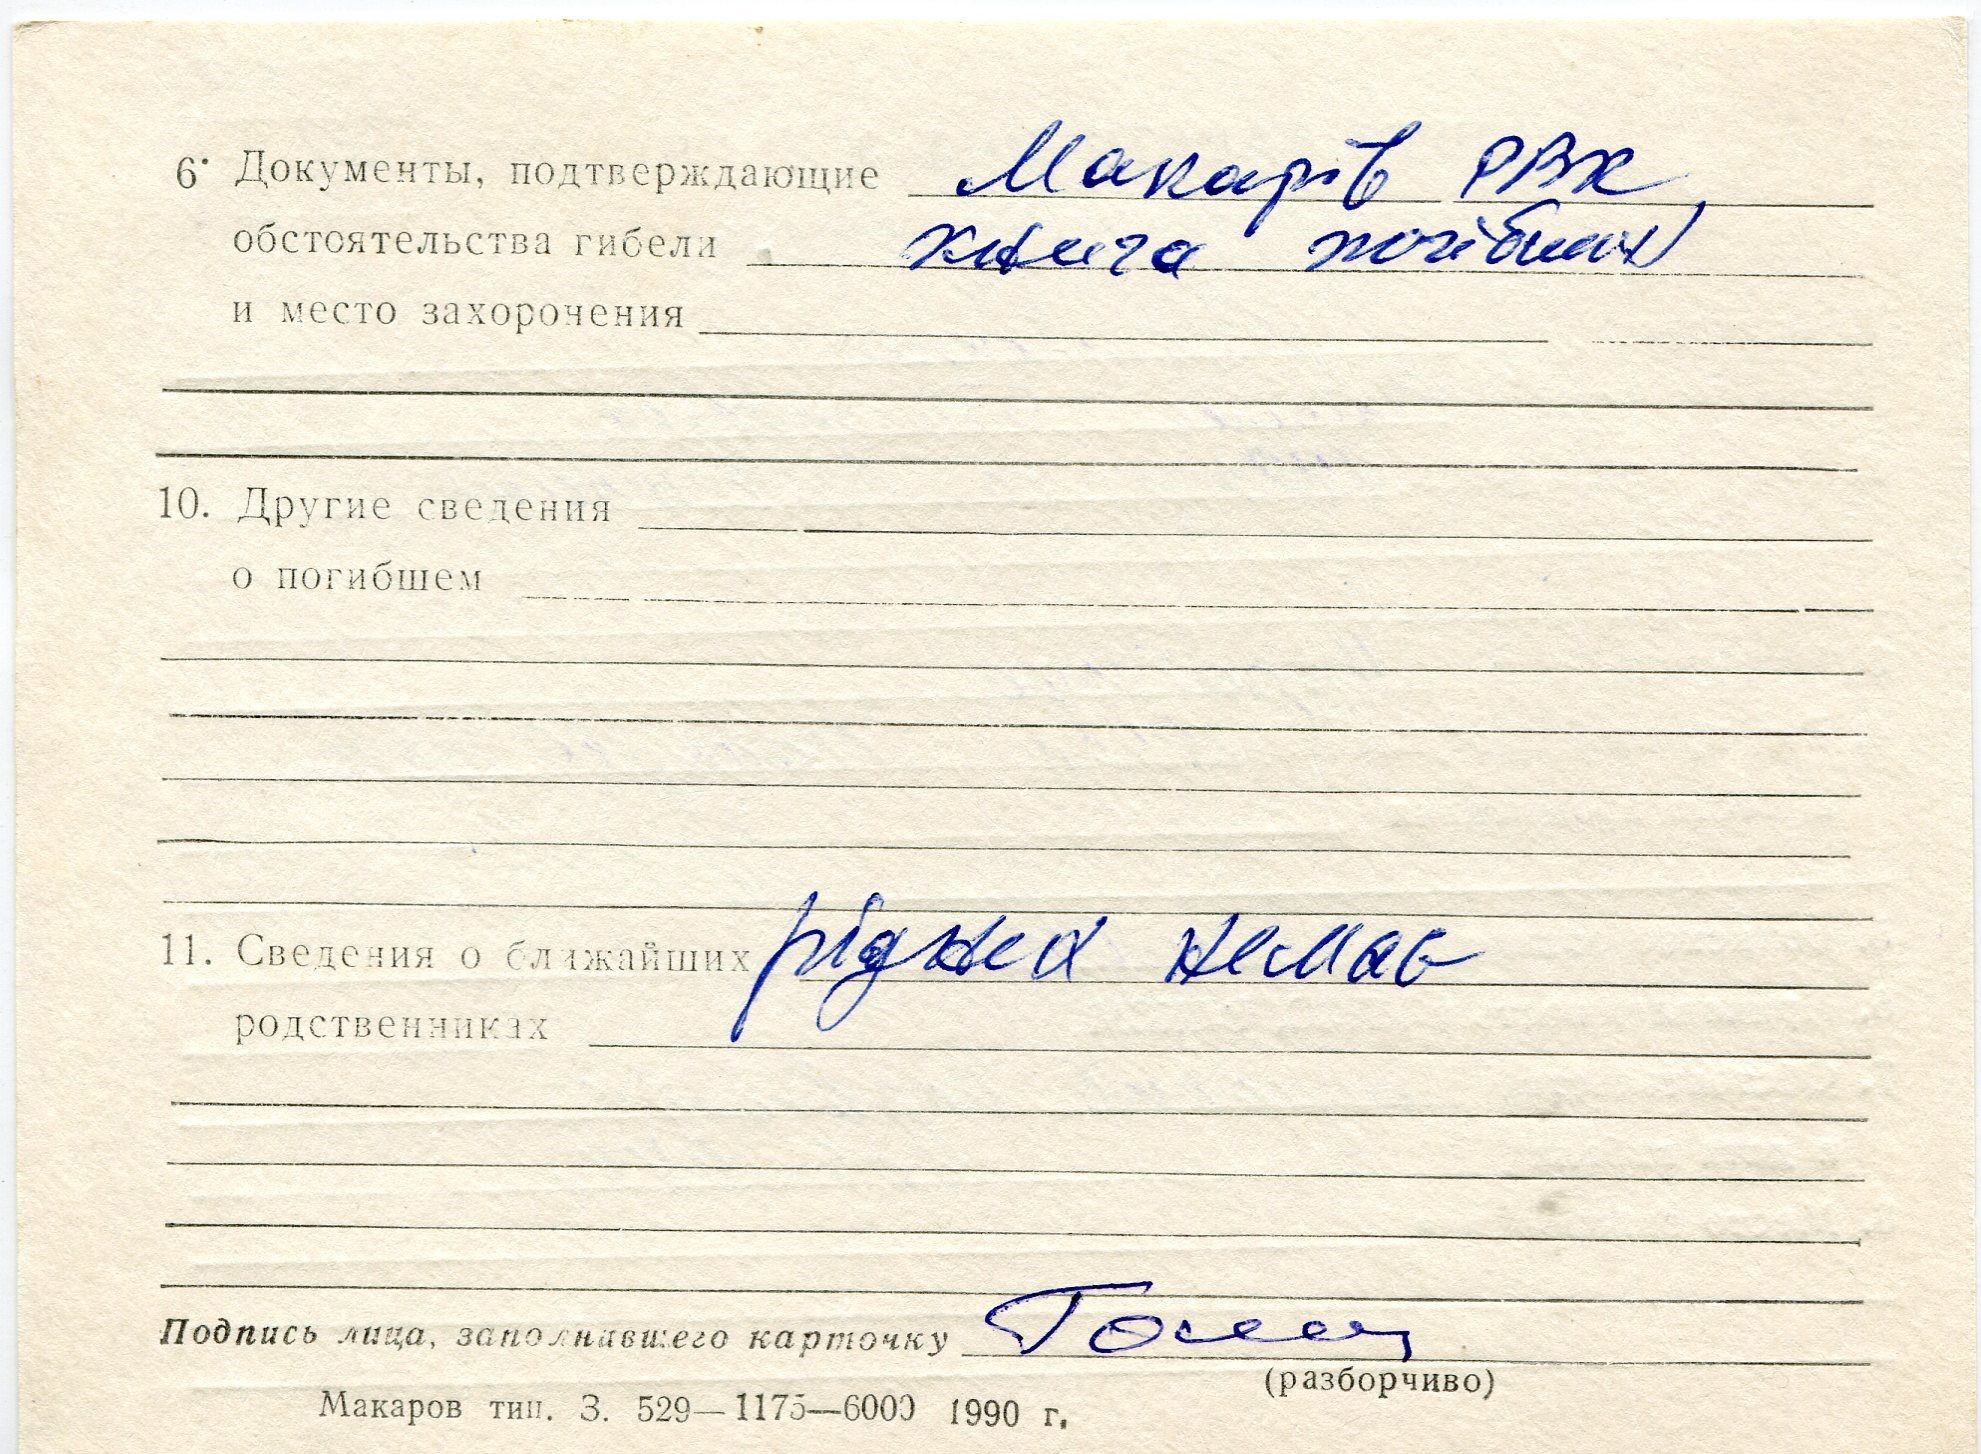 6. Документы, подтверждающие Макарів РВК,
обстоятельства гибели книга погібших
и место захоронения
10. Другие сведения
о погибшем
11. Сведения о ближайших рідних немає
родственниках
Подпись лица, заполнившего карточку
(разборчиво)
Макаров тип. З. 529—1175—6000 1990 г.